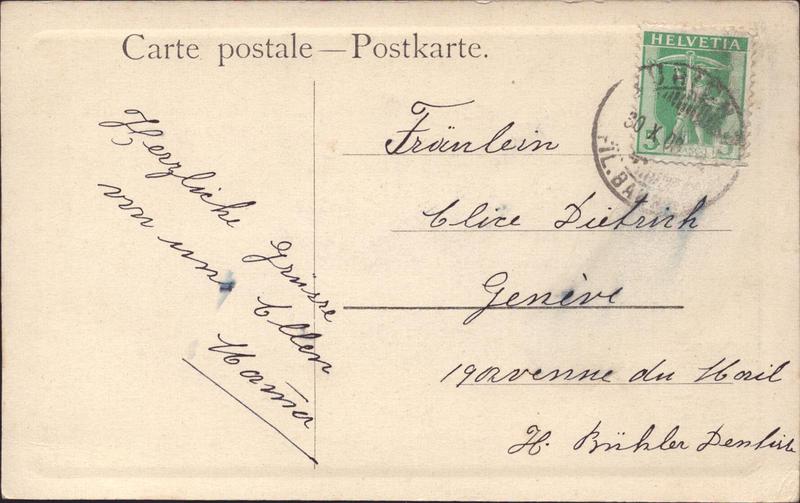 Carte postale — Postkarte.
HELVETIA
5 5
30 X 09
FIL. BA
Fräulein
Elise Dietrich
Genève
19 avenue du Mail
H. Bühler Dentiste
Herzliche Grüsse
von uns Allen
Mama